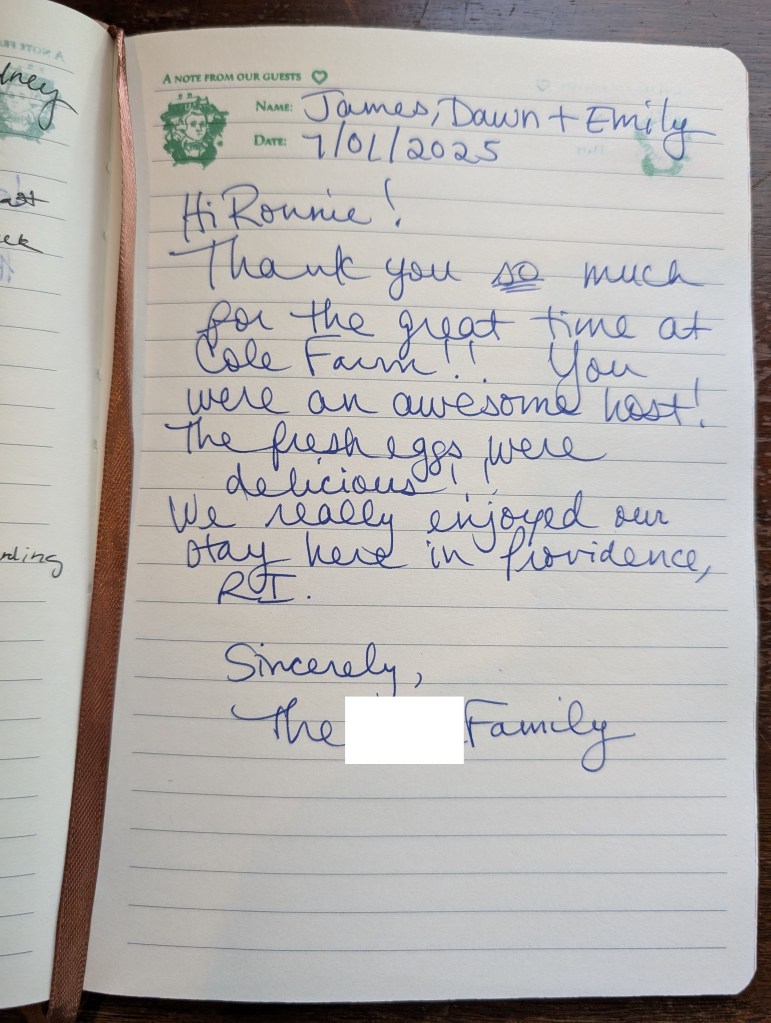 A NOTE FROM OUR GUESTS
NAME: James, Dawn + Emily
DATE: 7/01/2025
Hi Ronnie!
Thank you so much
for the great time at
Cole Farm!! You
were an awesome host!
The fresh eggs were
delicious!!
We really enjoyed our
stay here in Providence,
RI.
Sincerely,
The Family